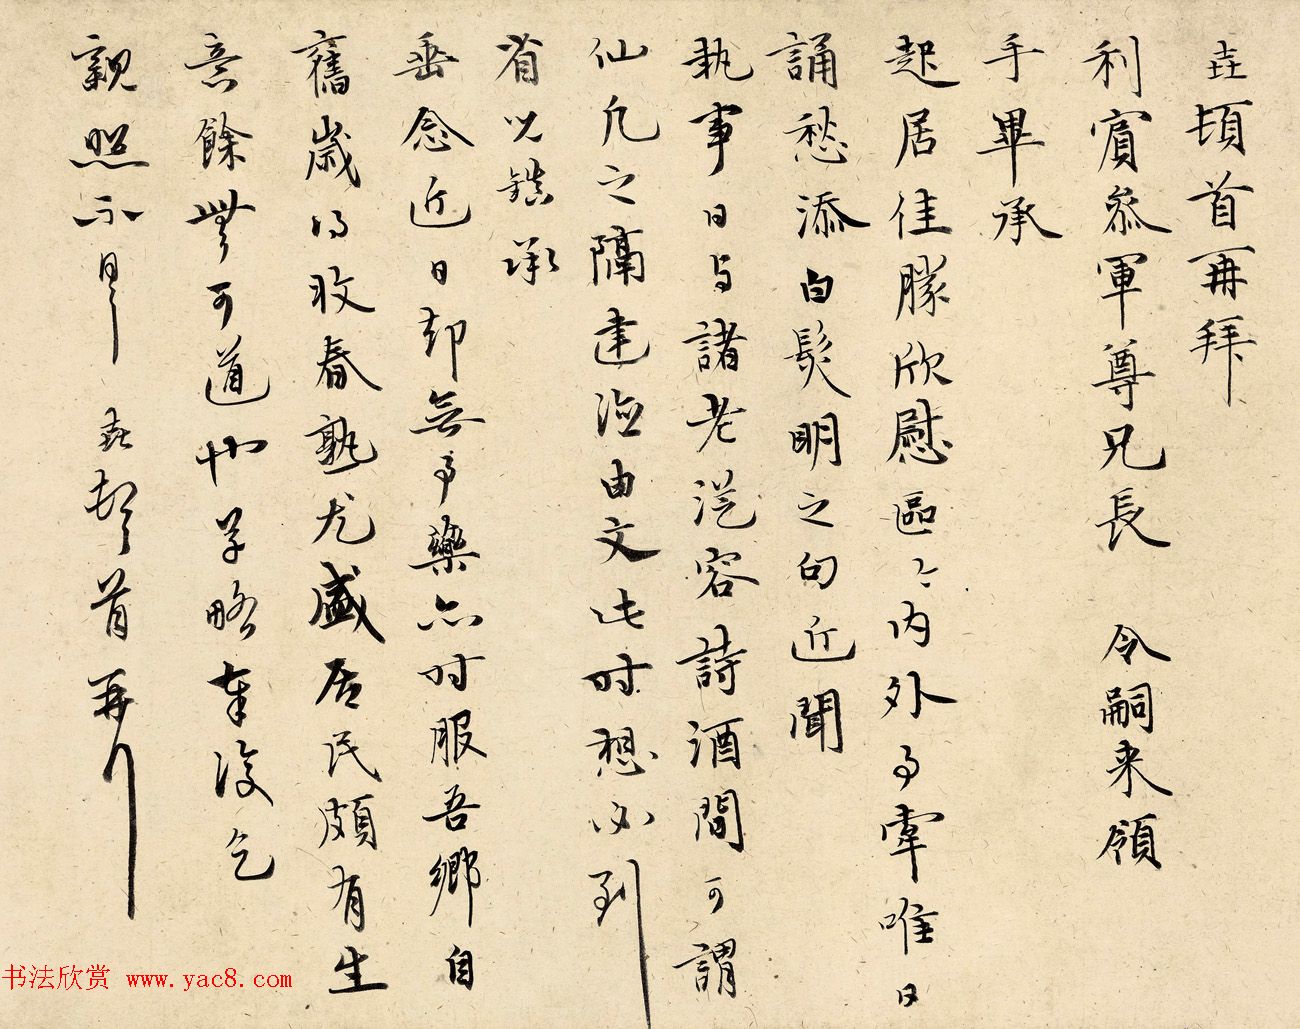 垚頓首再拜
利賓叅軍尊兄長 令嗣来領
手畢承
起居佳勝欣慰區〻内外事牽唯日
誦愁添白髮明之句近聞
執事日与諸老從容詩酒間可謂
仙凡之隔建由文此时想必到
省以承
垂念近日却無事藥亦时服吾鄉自
舊歲得收春熟尤盛居民頗有生
意餘無可道也草略奉復乞
親照不宣 垚頓首再拜
书法欣赏 www.yac8.com